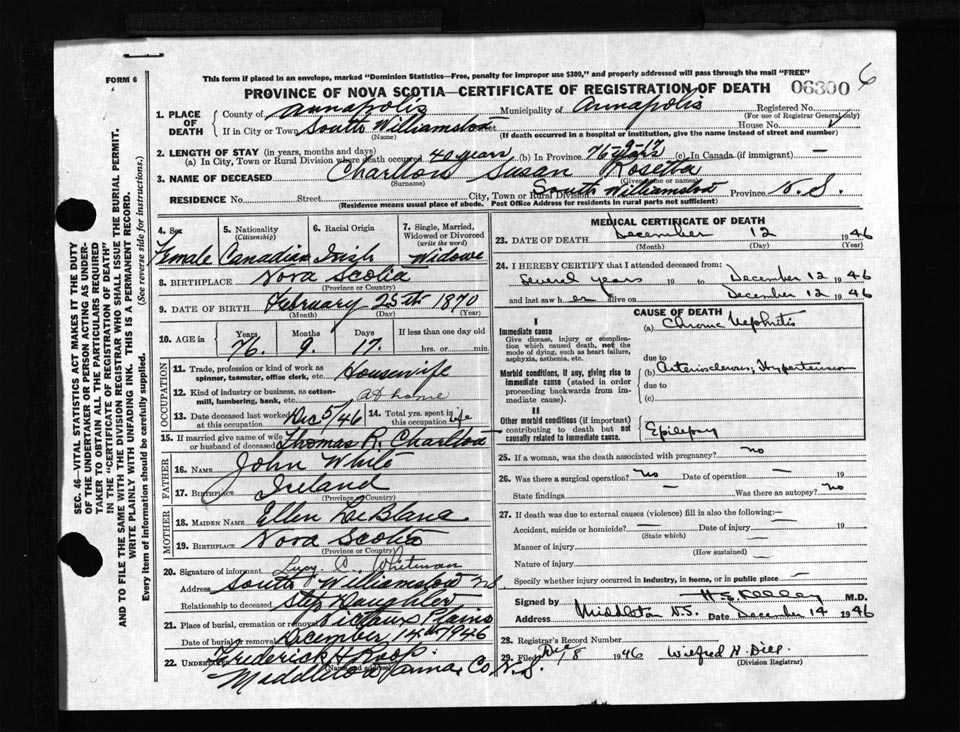 FORM 6
This form if placed in an envelope, marked "Dominion Statistics—Free, penalty for improper use $300," and properly addressed will pass through the mail "FREE"
PROVINCE OF NOVA SCOTIA—CERTIFICATE OF REGISTRATION OF DEATH 06300 6
1. PLACE OF DEATH
County of Annapolis Municipality of Annapolis Registered No.
(For use of Registrar General only)
If in City or Town South Williamston House No.
(Name) (If death occurred in a hospital or institution, give the name instead of street and number)
2. LENGTH OF STAY (in years, months and days)
(a) In City, Town or Rural Division where death occurred 40 years (b) In Province 76 years 9-17 (c) In Canada (if immigrant) —
3. NAME OF DECEASED Charlton Susan Rosetta
(Surname) (Given name or names)
RESIDENCE No. Street City, Town or Rural Division South Williamston Province N.S.
(Residence means usual place of abode. Post Office Address for residents in rural parts not sufficient)
4. Sex Female
5. Nationality (Citizenship) Canadian
6. Racial Origin Irish
7. Single, Married, Widowed or Divorced (write the word) Widow
8. BIRTHPLACE Nova Scotia
(Province or Country)
9. DATE OF BIRTH February 25th 1870
(Month) (Day) (Year)
10. AGE in Years 76. Months 9. Days 17. If less than one day old hrs. or min.
11. Trade, profession or kind of work as spinner, teamster, office clerk, etc. Housewife
12. Kind of industry or business, as cotton-mill, lumbering, bank, etc. at home
13. Date deceased last worked at this occupation Dec 5/46 14. Total yrs. spent in this occupation Life
15. If married give name of wife or husband of deceased Thomas R. Charlton
FATHER
16. NAME John White
17. Birthplace Ireland
(Province or Country)
MOTHER
18. MAIDEN NAME Ellen
19. BIRTHPLACE Nova Scotia
(Province or Country)
20. Signature of informant Lucy C. Whitman
Address South Williamston NS
Relationship to deceased Step Daughter
21. Place of burial, cremation or removal Plains
Date of burial or removal December 14th 1946
22. UNDERTAKER Frederick H Roop.
(Name and address)
Middleton Anna. Co. N.S.
MEDICAL CERTIFICATE OF DEATH
23. DATE OF DEATH December 12 1946
(Month) (Day) (Year)
24. I HEREBY CERTIFY that I attended deceased from:
Several years 19 to December 12 1946
and last saw her alive on December 12 1946
CAUSE OF DEATH
I
Immediate cause
Give disease, injury or complication which caused death, not the mode of dying, such as heart failure, asphyxia, asthenia, etc.
(a) Chronic Nephritis
due to
Morbid conditions, if any, giving rise to immediate cause (stated in order proceeding backwards from immediate cause).
(b) Arteriosclerosis, Hypertension
due to
(c)
II
Other morbid conditions (if important) contributing to death but not causally related to immediate cause.
Epilepsy
25. If a woman, was the death associated with pregnancy? no
26. Was there a surgical operation? no Date of operation — 19
State findings — Was there an autopsy? no
27. If death was due to external causes (violence) fill in also the following:—
Accident, suicide or homicide? — Date of injury — 19
(State which)
Manner of injury —
(How sustained)
Nature of injury —
Specify whether injury occurred in industry, in home, or in public place —
Signed by M.D.
Address Middleton N.S. Date December 14 1946
28. Registrar's Record Number
29. Filed Dec 18 1946 Wilfred H. Dill
(Division Registrar)
SEC. 46—VITAL STATISTICS ACT MAKES IT THE DUTY
OF THE UNDERTAKER OR PERSON ACTING AS UNDERTAKER TO OBTAIN ALL THE PARTICULARS REQUIRED
IN THE "CERTIFICATE OF REGISTRATION OF DEATH"
AND TO FILE THE SAME WITH THE DIVISION REGISTRAR WHO SHALL ISSUE THE BURIAL PERMIT.
WRITE PLAINLY WITH UNFADING INK. THIS IS A PERMANENT RECORD.
Every item of information should be carefully supplied. (See reverse side for instructions.)